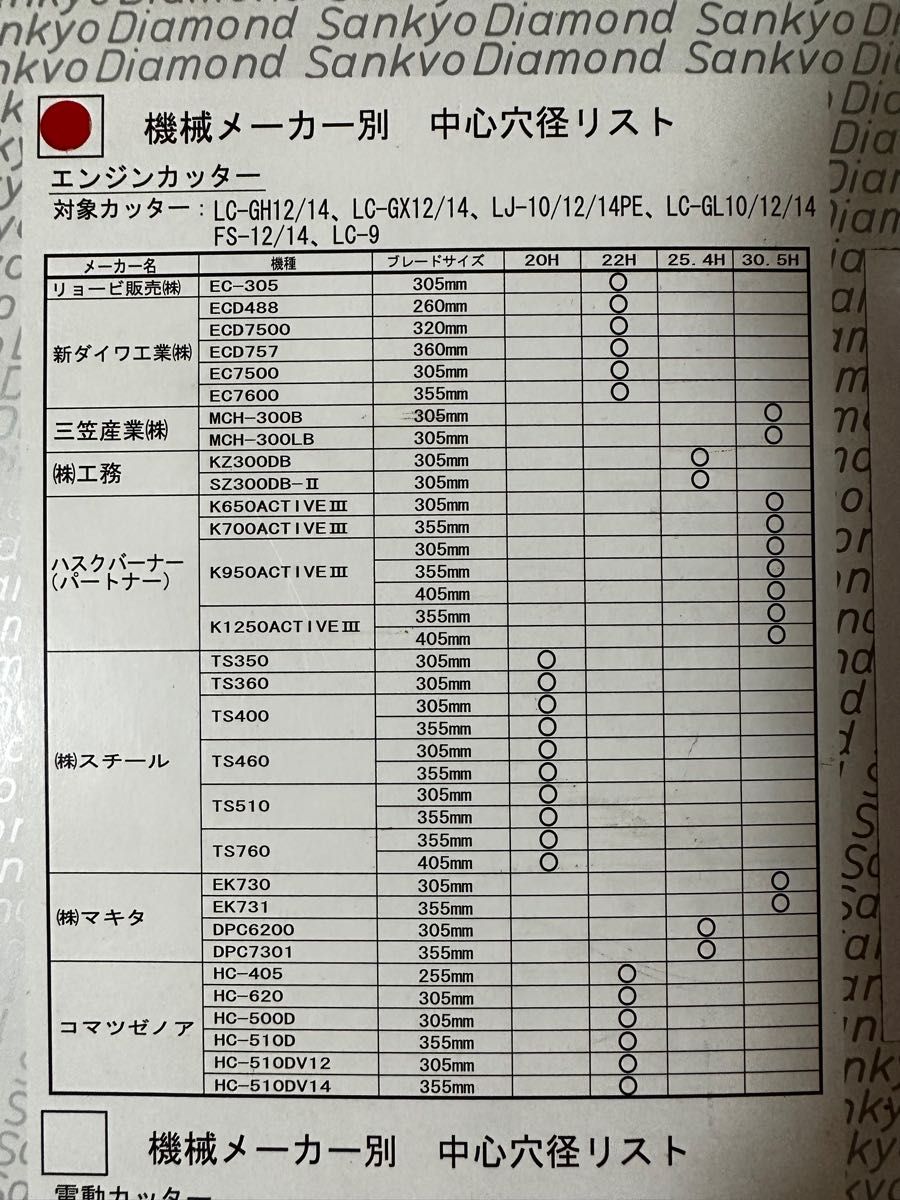 nkyo Diamond Sankyo Diamond Sankyo Di
nkyo Diamond Sankyo Diamond Sankyo Di
機械メーカー別 中心穴径リスト
エンジンカッター
対象カッター:LC-GH12/14、LC-GX12/14、LJ-10/12/14PE、LC-GL10/12/14
FS-12/14、LC-9
メーカー名 機種 ブレードサイズ 20H 22H 25.4H 30.5H
リョービ販売㈱ EC-305 305mm ○
新ダイワ工業㈱ ECD488 260mm ○
ECD7500 320mm ○
ECD757 360mm ○
EC7500 305mm ○
EC7600 355mm ○
三笠産業㈱ MCH-300B 305mm ○
MCH-300LB 305mm ○
㈱工務 KZ300DB 305mm ○
SZ300DB-Ⅱ 305mm ○
ハスクバーナー
(パートナー)
K650ACTIVEⅢ 305mm ○
K700ACTIVEⅢ 355mm ○
K950ACTIVEⅢ 305mm ○
355mm ○
405mm ○
K1250ACTIVEⅢ 355mm ○
405mm ○
㈱スチール TS350 305mm ○
TS360 305mm ○
TS400 305mm ○
355mm ○
TS460 305mm ○
355mm ○
TS510 305mm ○
355mm ○
TS760 355mm ○
405mm ○
㈱マキタ EK730 305mm ○
EK731 355mm ○
DPC6200 305mm ○
DPC7301 355mm ○
コマツゼノア HC-405 255mm ○
HC-620 305mm ○
HC-500D 305mm ○
HC-510D 355mm ○
HC-510DV12 305mm ○
HC-510DV14 355mm ○
機械メーカー別 中心穴径リスト
電動カッター